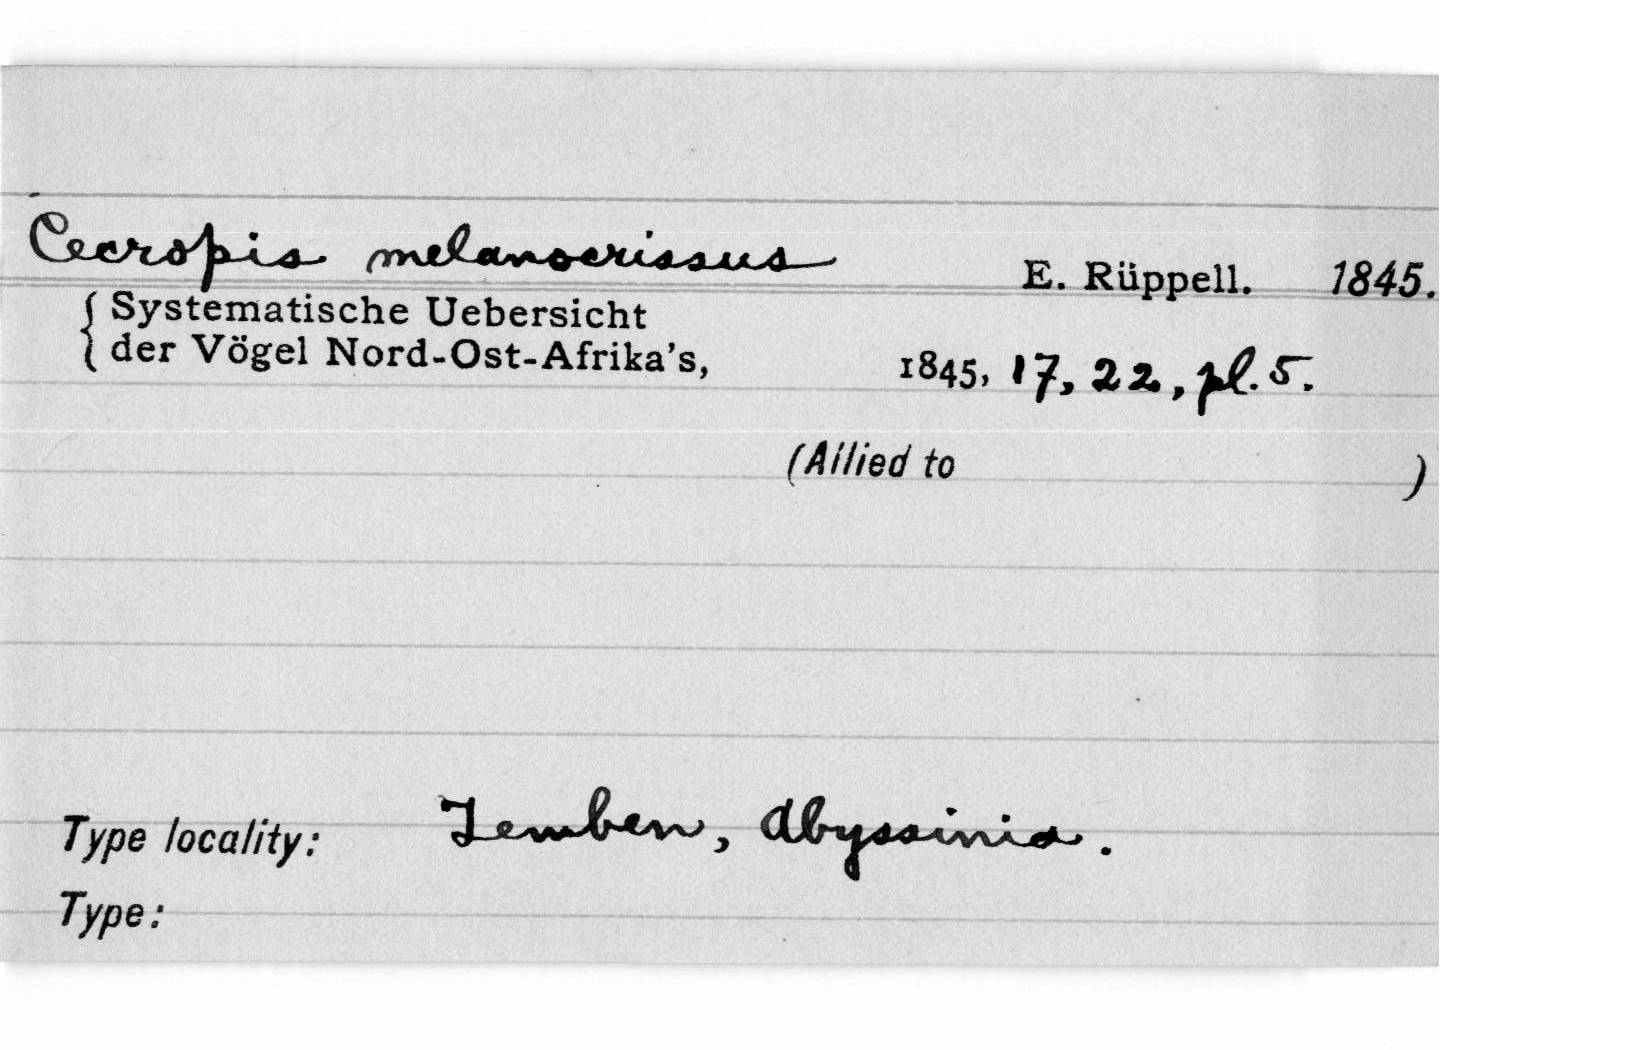 Cecropis melanocrissus E. Rüppell. 1845.
Systematische Uebersicht
der Vögel Nord-Ost-Afrika's, 1845, 17, 22, pl. 5.
(Allied to )
Type locality: Temben, Abyssinia.
Type: